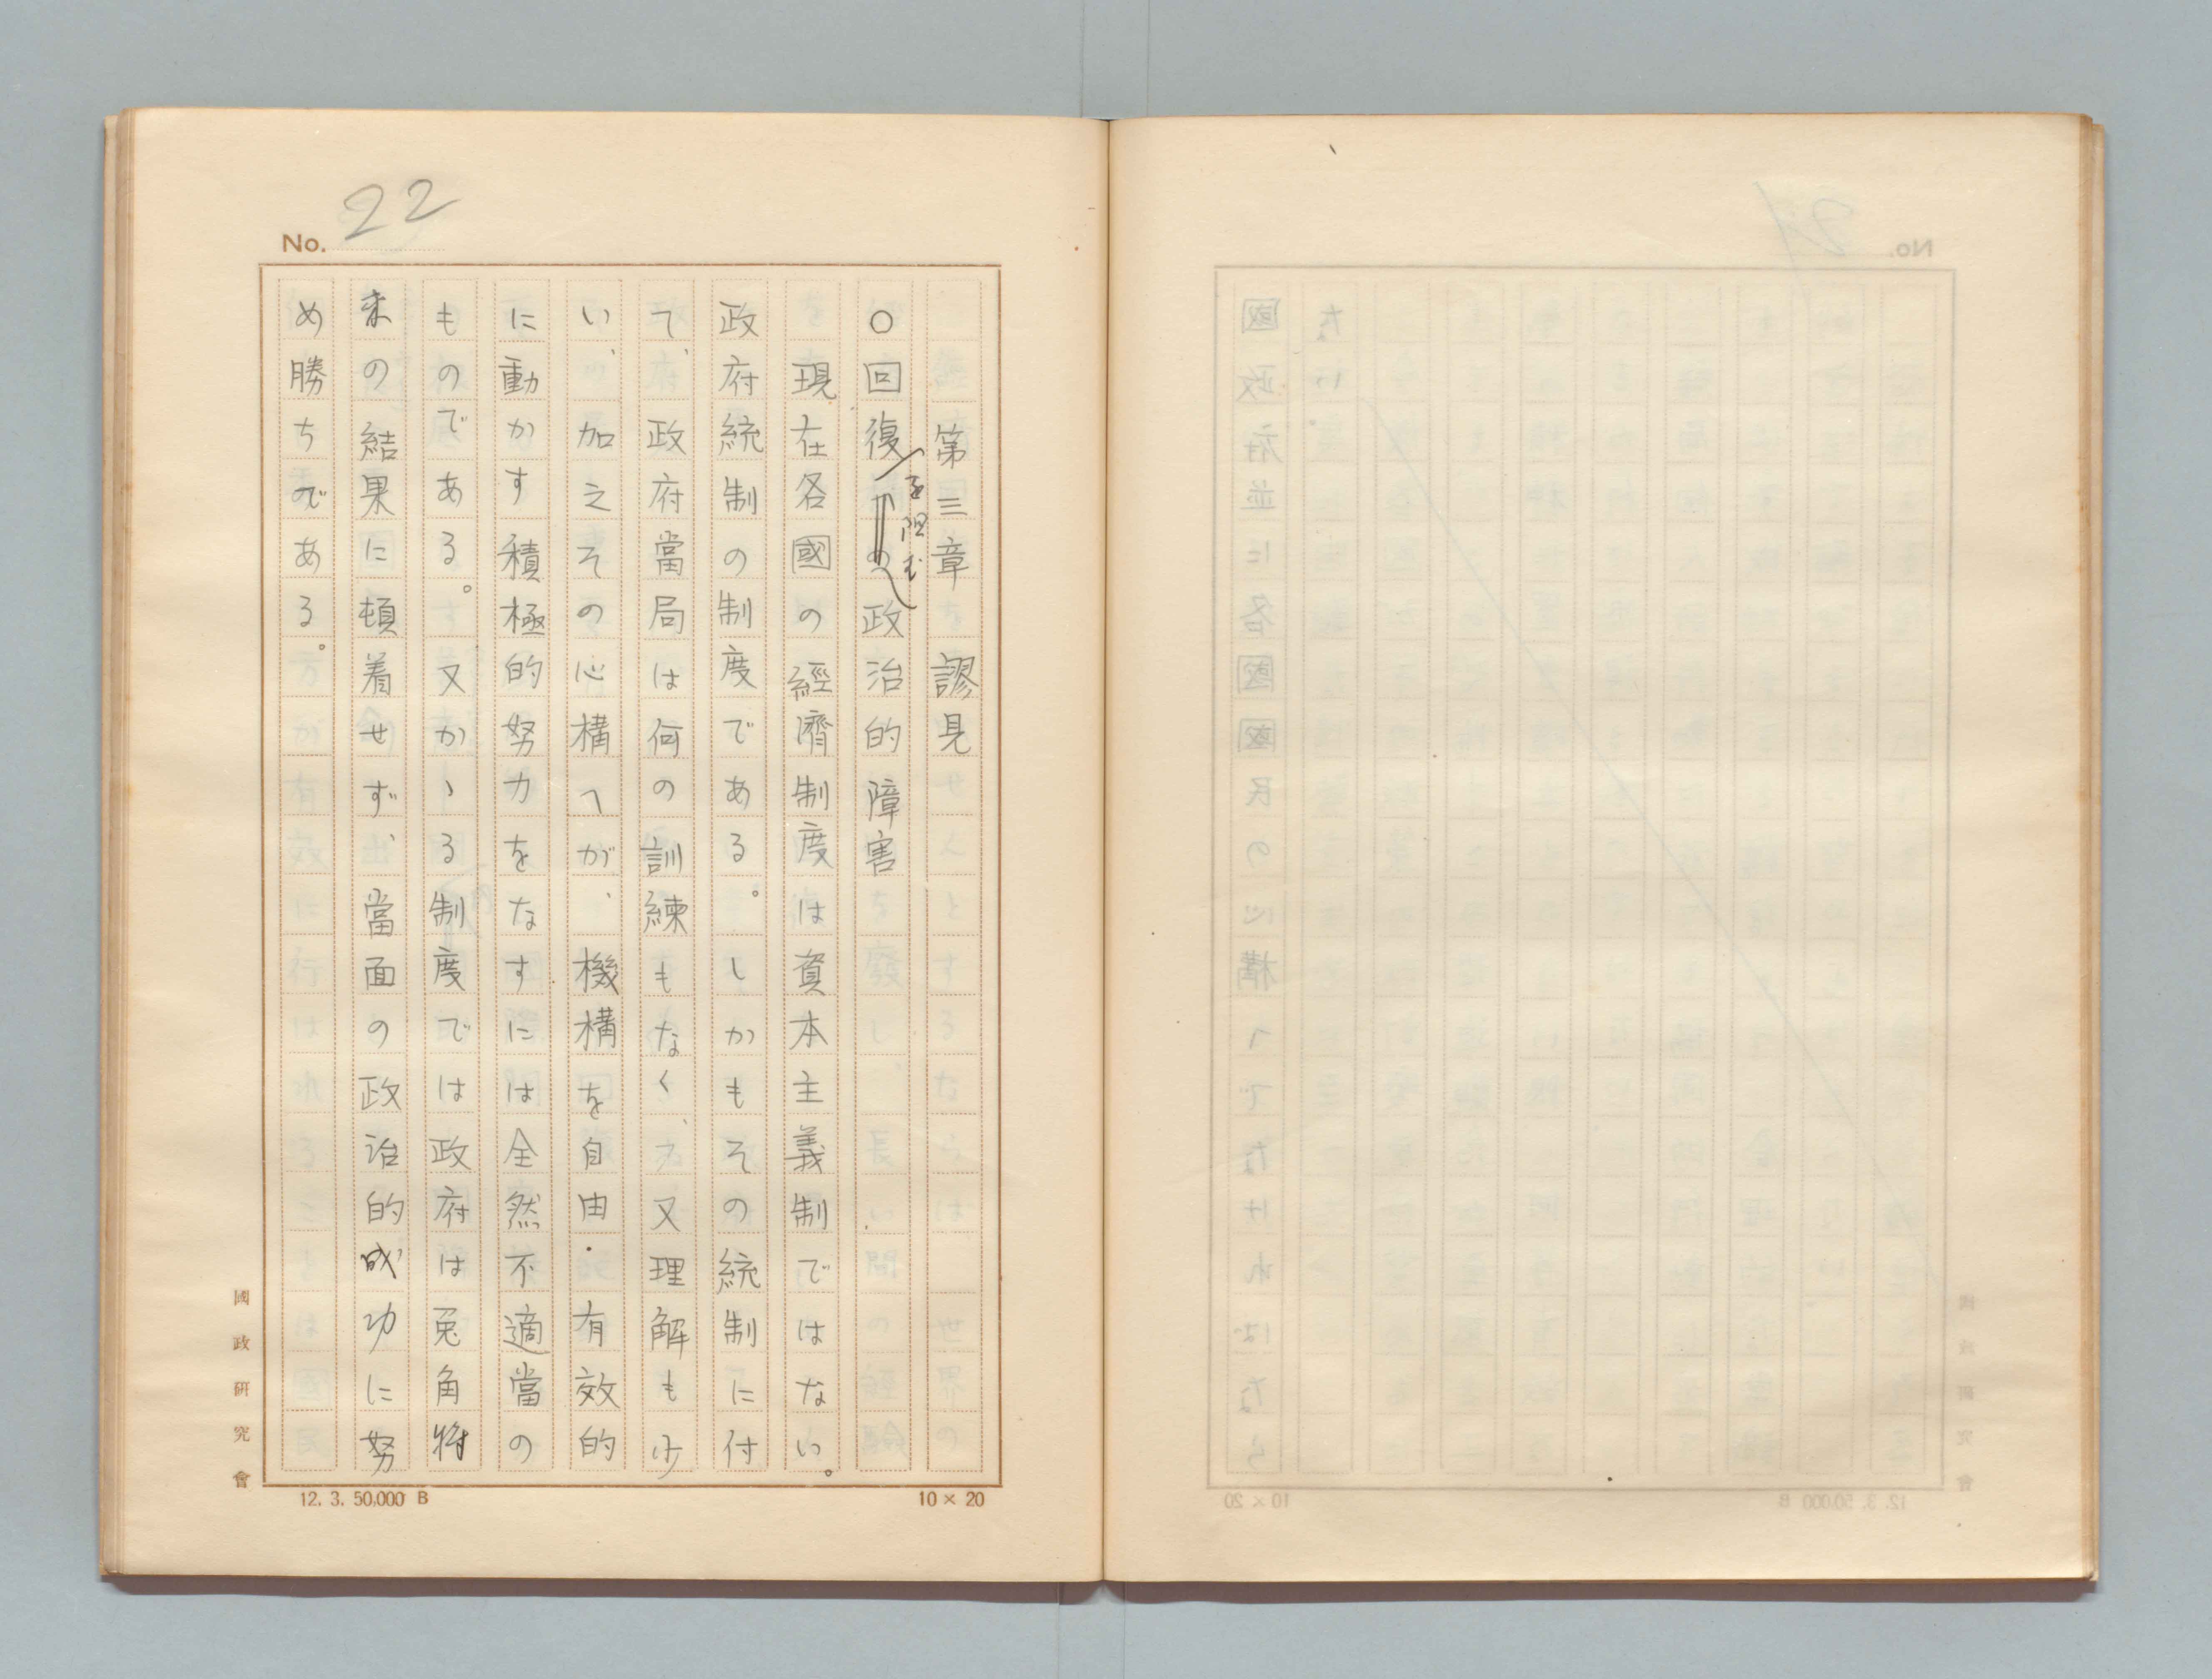 No. 22
第三章 謬見
○回復を阻む政治的障害
現在各國の經濟制度は資本主義制ではない。
政府統制の制度である。しかもその統制に付
て、政府當局は何の訓練もなく、又理解も少
い、加之その心構へが、機構を自由・有效的
に動かす積極的努力をなすには全然不適當の
ものである。又かゝる制度では政府は兎角將
来の結果に頓着せず、當面の政治的成功に努
め勝ちである。
國政研究會
12. 3. 50,000 B
10 × 20